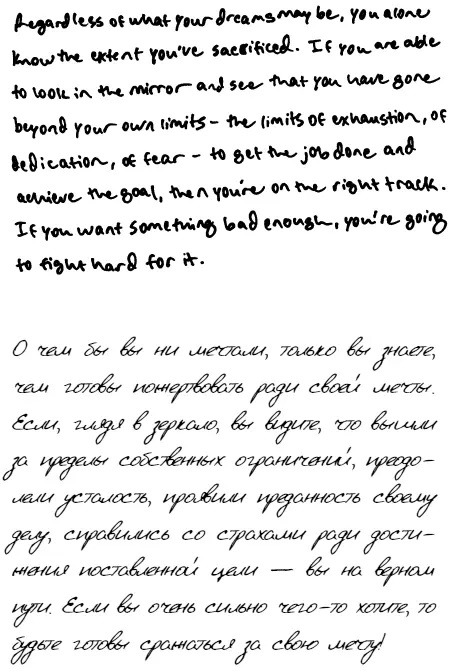 Regardless of what your dreams may be, you alone
know the extent you've sacrificed. If you are able
to look in the mirror and see that you have gone
beyond your own limits – the limits of exhaustion, of
dedication, of fear – to get the job done and
achieve the goal, then you're on the right track.
If you want something bad enough, you're going
to fight hard for it.
О чем бы вы ни мечтали, только вы знаете,
чем готовы пожертвовать ради своей мечты.
Если, глядя в зеркало, вы видите, что вышли
за пределы собственных ограничений, преодо-
лели усталость, проявили преданность своему
делу, справились со страхами ради дости-
жения поставленной цели — вы на верном
пути. Если вы очень сильно чего-то хотите, то
будьте готовы сражаться за свою мечту!